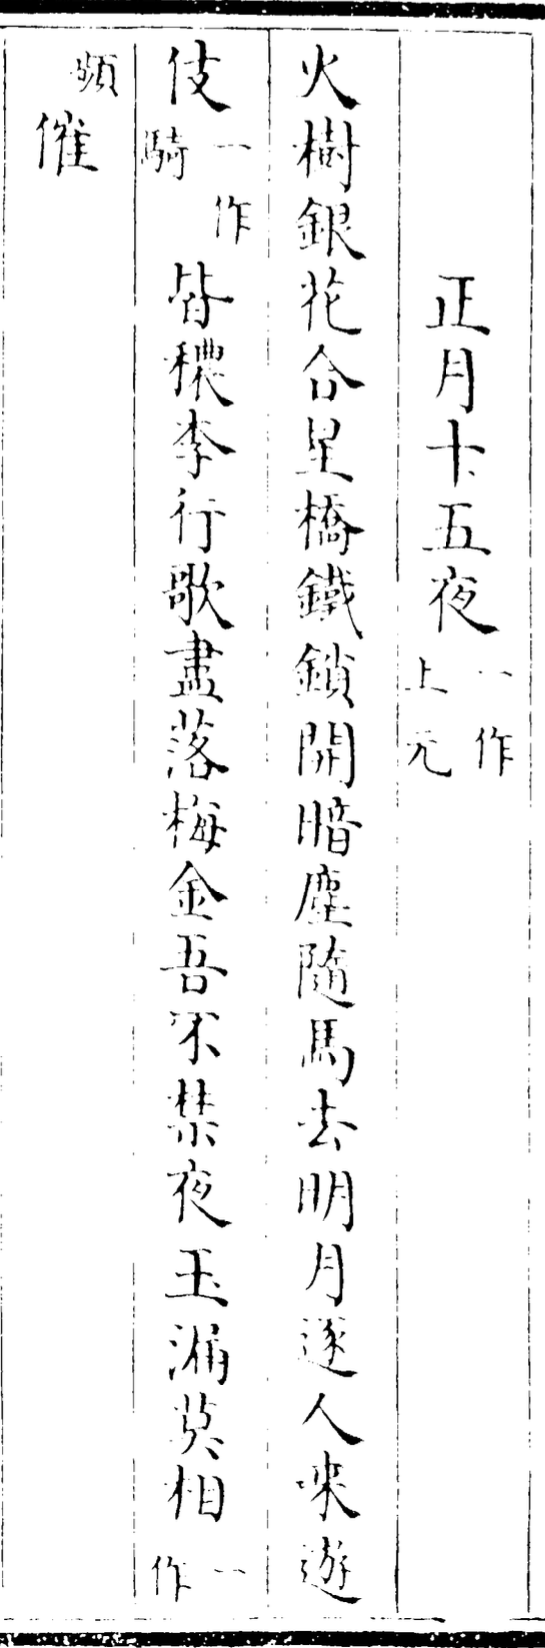 正月十五夜一作上元
火樹銀花合星橋鐵鎖開暗塵隨馬去明月逐人來遊
伎一作騎皆穠李行歌盡落梅金吾不禁夜玉漏莫相一作
頻催